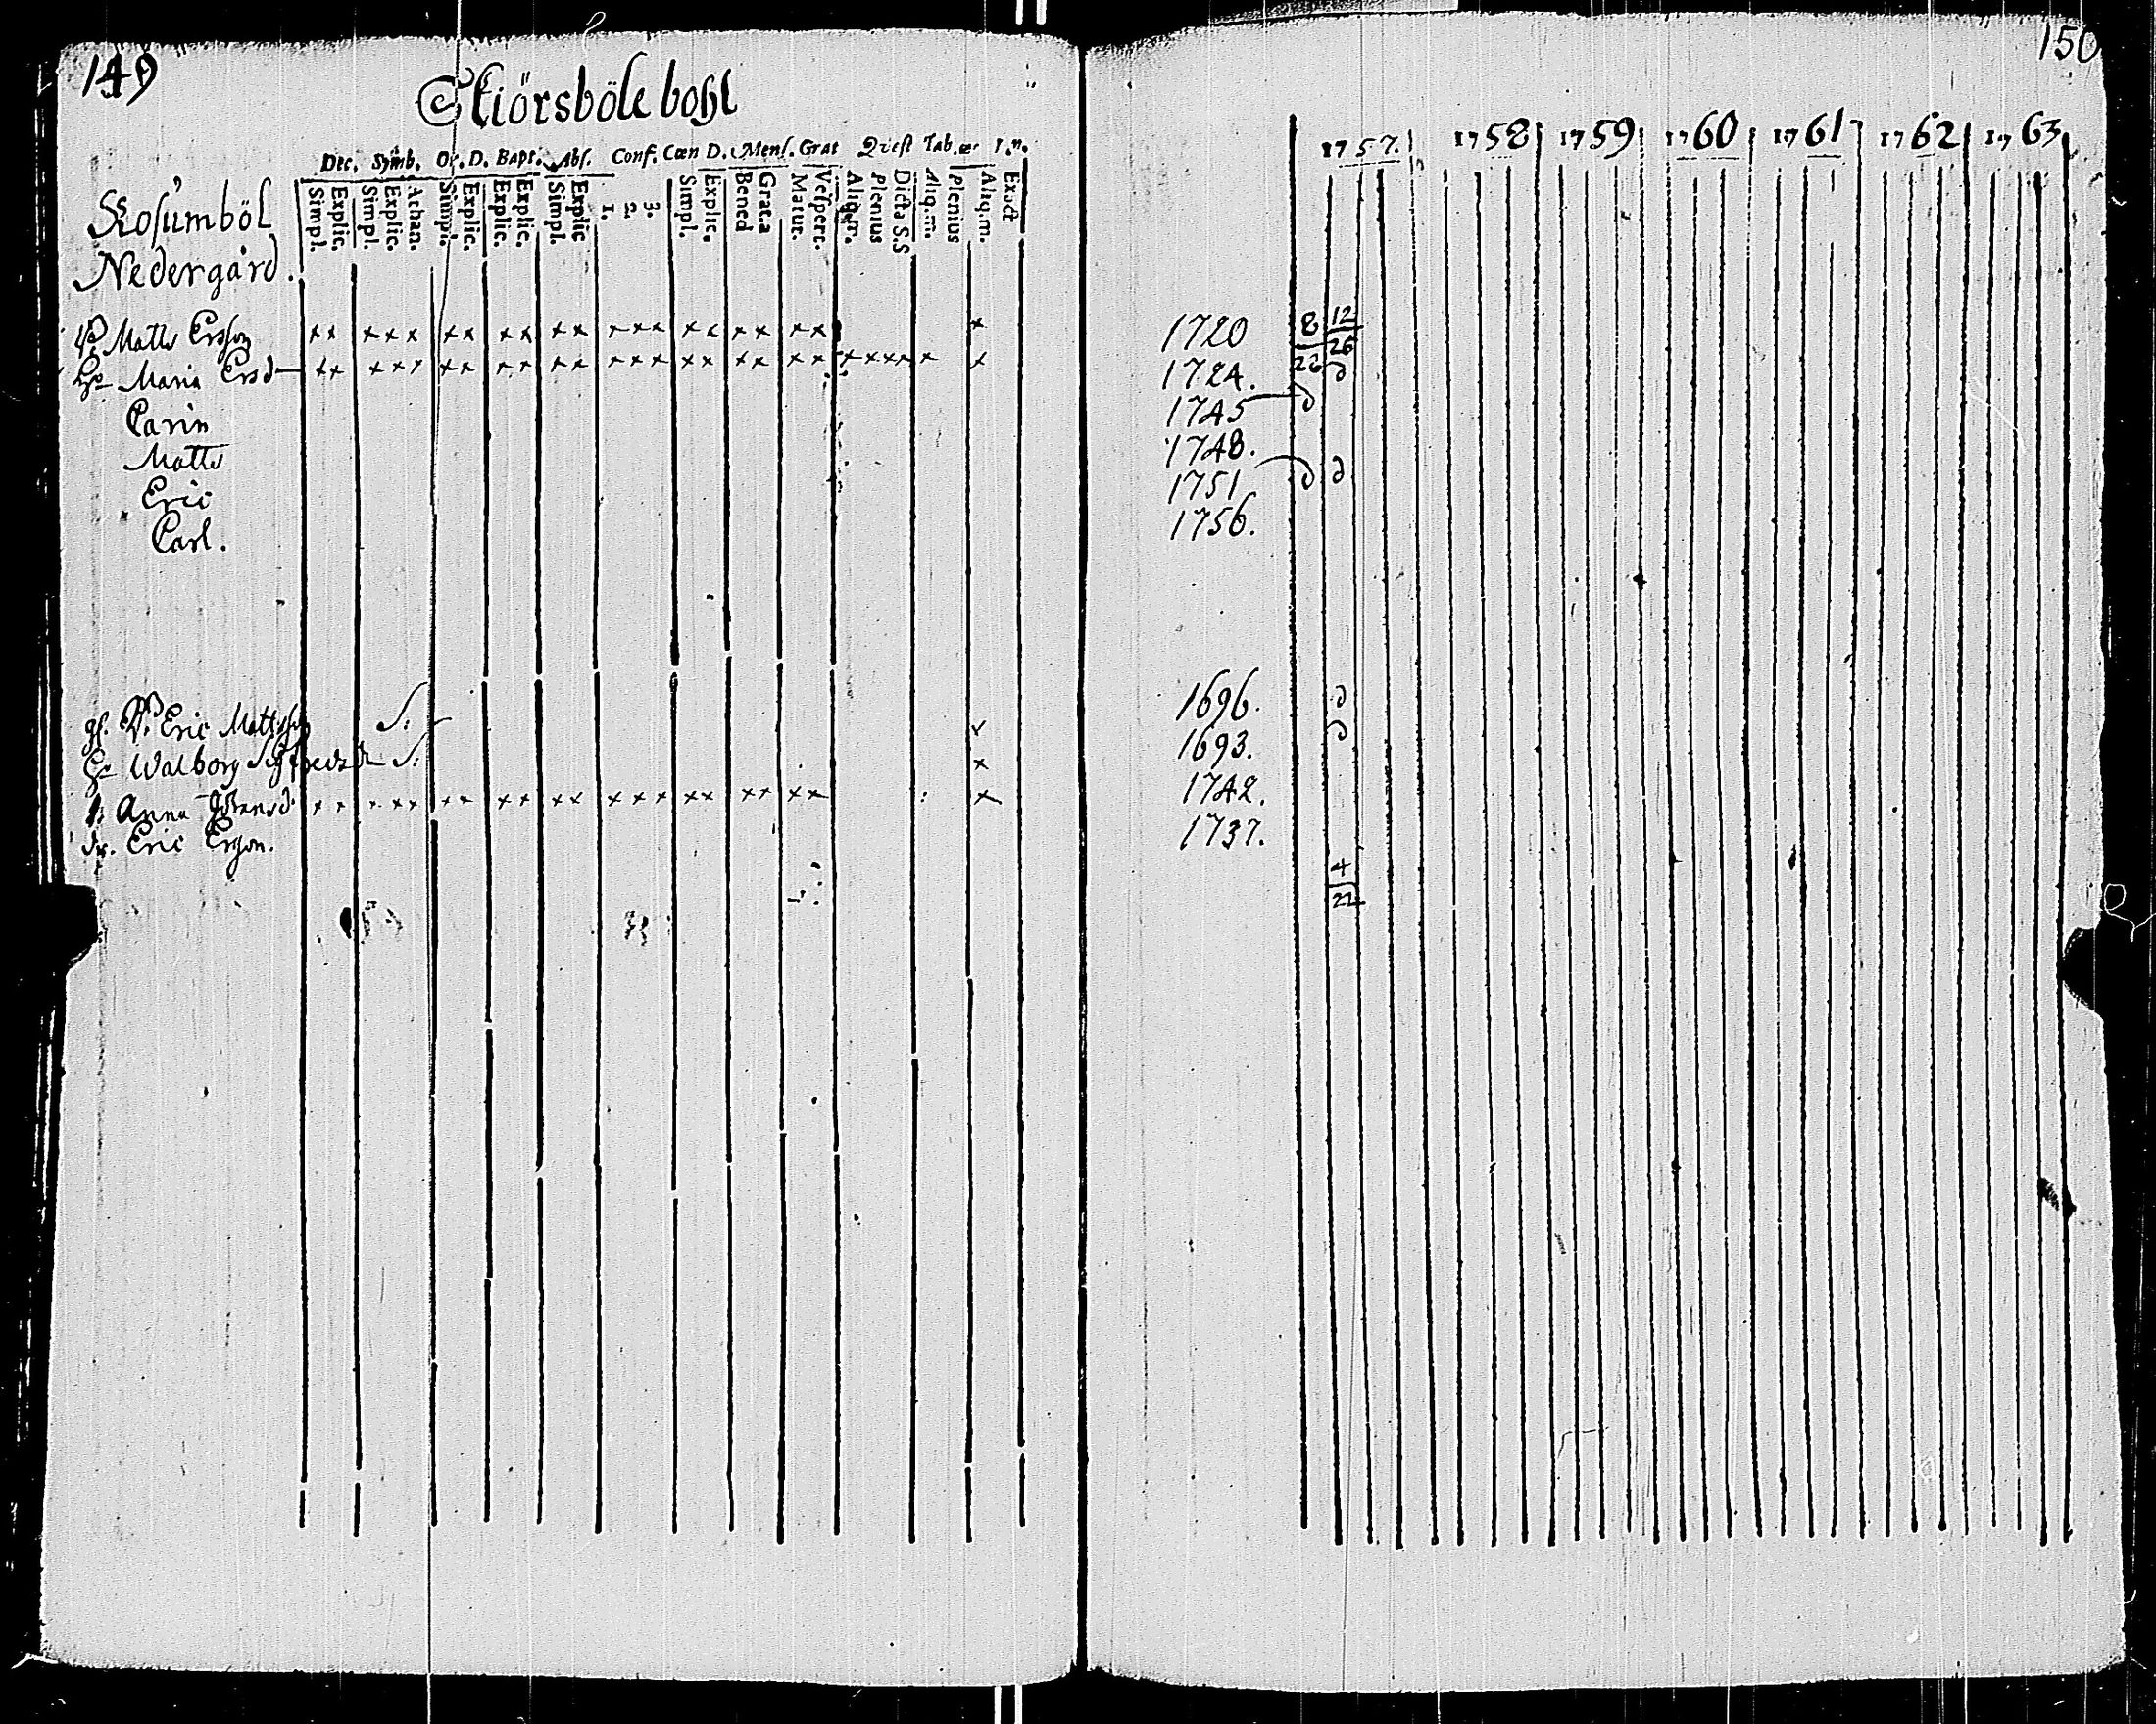 149
Skiörsböle bohl
Dec. Symb. Or. D. Bapt. Abs. Conf. Cœn D. Mens. Grat Quæst Tab.
Simpl. Explic. Simpl. Explic. Athan. Simpl. Explic. Explic. Explic. Simpl. Explic 1. 2. 3. Simpl. Explic. Bened Grat.a Matut. Vespert. Aliq.m. Plenius Dicta S.S Aliq.m. Plenius Aliq.m. Exact
Rosumböl
Nedergård.
Matts Ersson
Hu Maria Ersd
Carin
Matts
Eric
Carl.
gl. Eric Mattsson S:
Hu Walborg Sigfredsd S:
p: Anna
dr. Eric Ersson.
150
1757. 1758 1759 1760 1761 1762 1763
1720 8 12 26
1724. 26
1745
1748.
1751
1756.
1696.
1693.
1742.
1737.
4